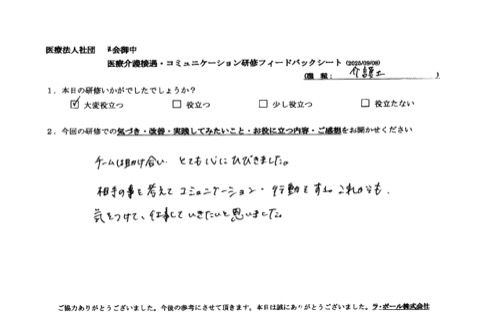 医療法人社団　　会御中
医療介護接遇・コミュニケーション研修フィードバックシート (2025/09/08)
(職 種： 介護士 )
１．本日の研修いかがでしたでしょうか？
☑ 大変役立つ　□ 役立つ　□ 少し役立つ　□ 役立たない
２．今回の研修での気づき・改善・実践してみたいこと・お役に立つ内容・ご感想をお聞かせください
チームは助け合い　とても心にひびきました。
相手の事を考えて コミュニケーション・行動を これからも、
気をつけて、仕事していきたいと思いました。
ご協力ありがとうございました。今後の参考にさせて頂きます。本日は誠にありがとうございました。ラ・ポール株式会社